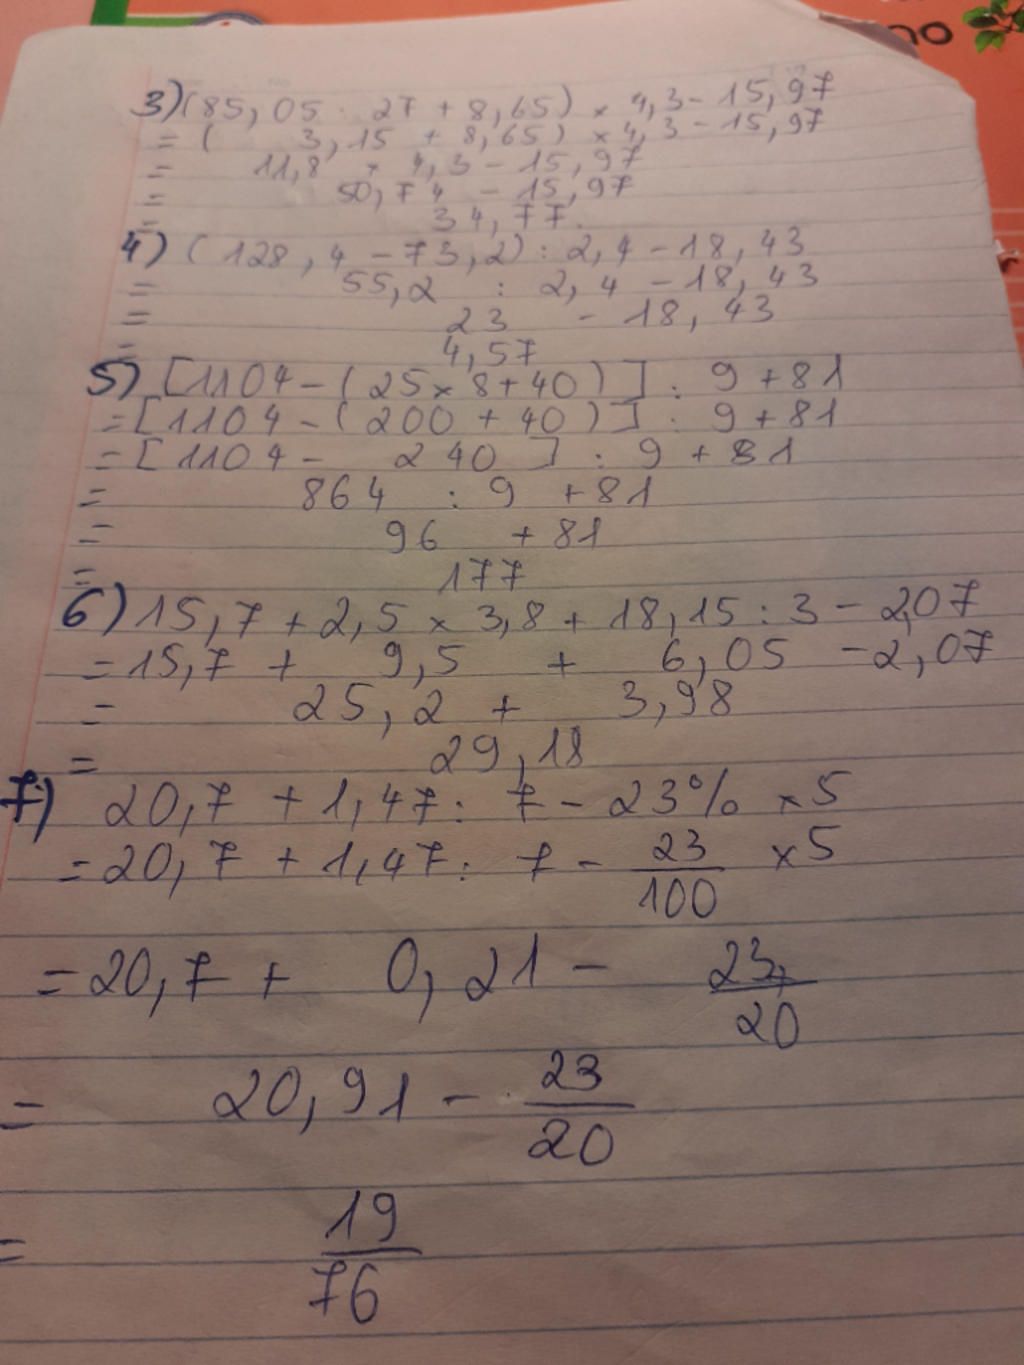 no
3) (85,05 : 27 + 8,65) × 4,3 - 15,97
= ( 3,15 + 8,65) × 4,3 - 15,97
= 11,8 × 4,3 - 15,97
= 50,74 - 15,97
= 34,77
4) (128,4 - 73,2) : 2,4 - 18,43
= 55,2 : 2,4 - 18,43
= 23 - 18,43
= 4,57
5) [1104 - (25 × 8 + 40)] : 9 + 81
= [1104 - (200 + 40)] : 9 + 81
= [1104 - 240] : 9 + 81
= 864 : 9 + 81
= 96 + 81
= 177
6) 15,7 + 2,5 × 3,8 + 18,15 : 3 - 2,07
= 15,7 + 9,5 + 6,05 - 2,07
= 25,2 + 3,98
= 29,18
7) 20,7 + 1,47 : 7 - 23% × 5
= 20,7 + 1,47 : 7 - 23/100 × 5
= 20,7 + 0,21 - 23/20
= 20,91 - 23/20
= 19/76